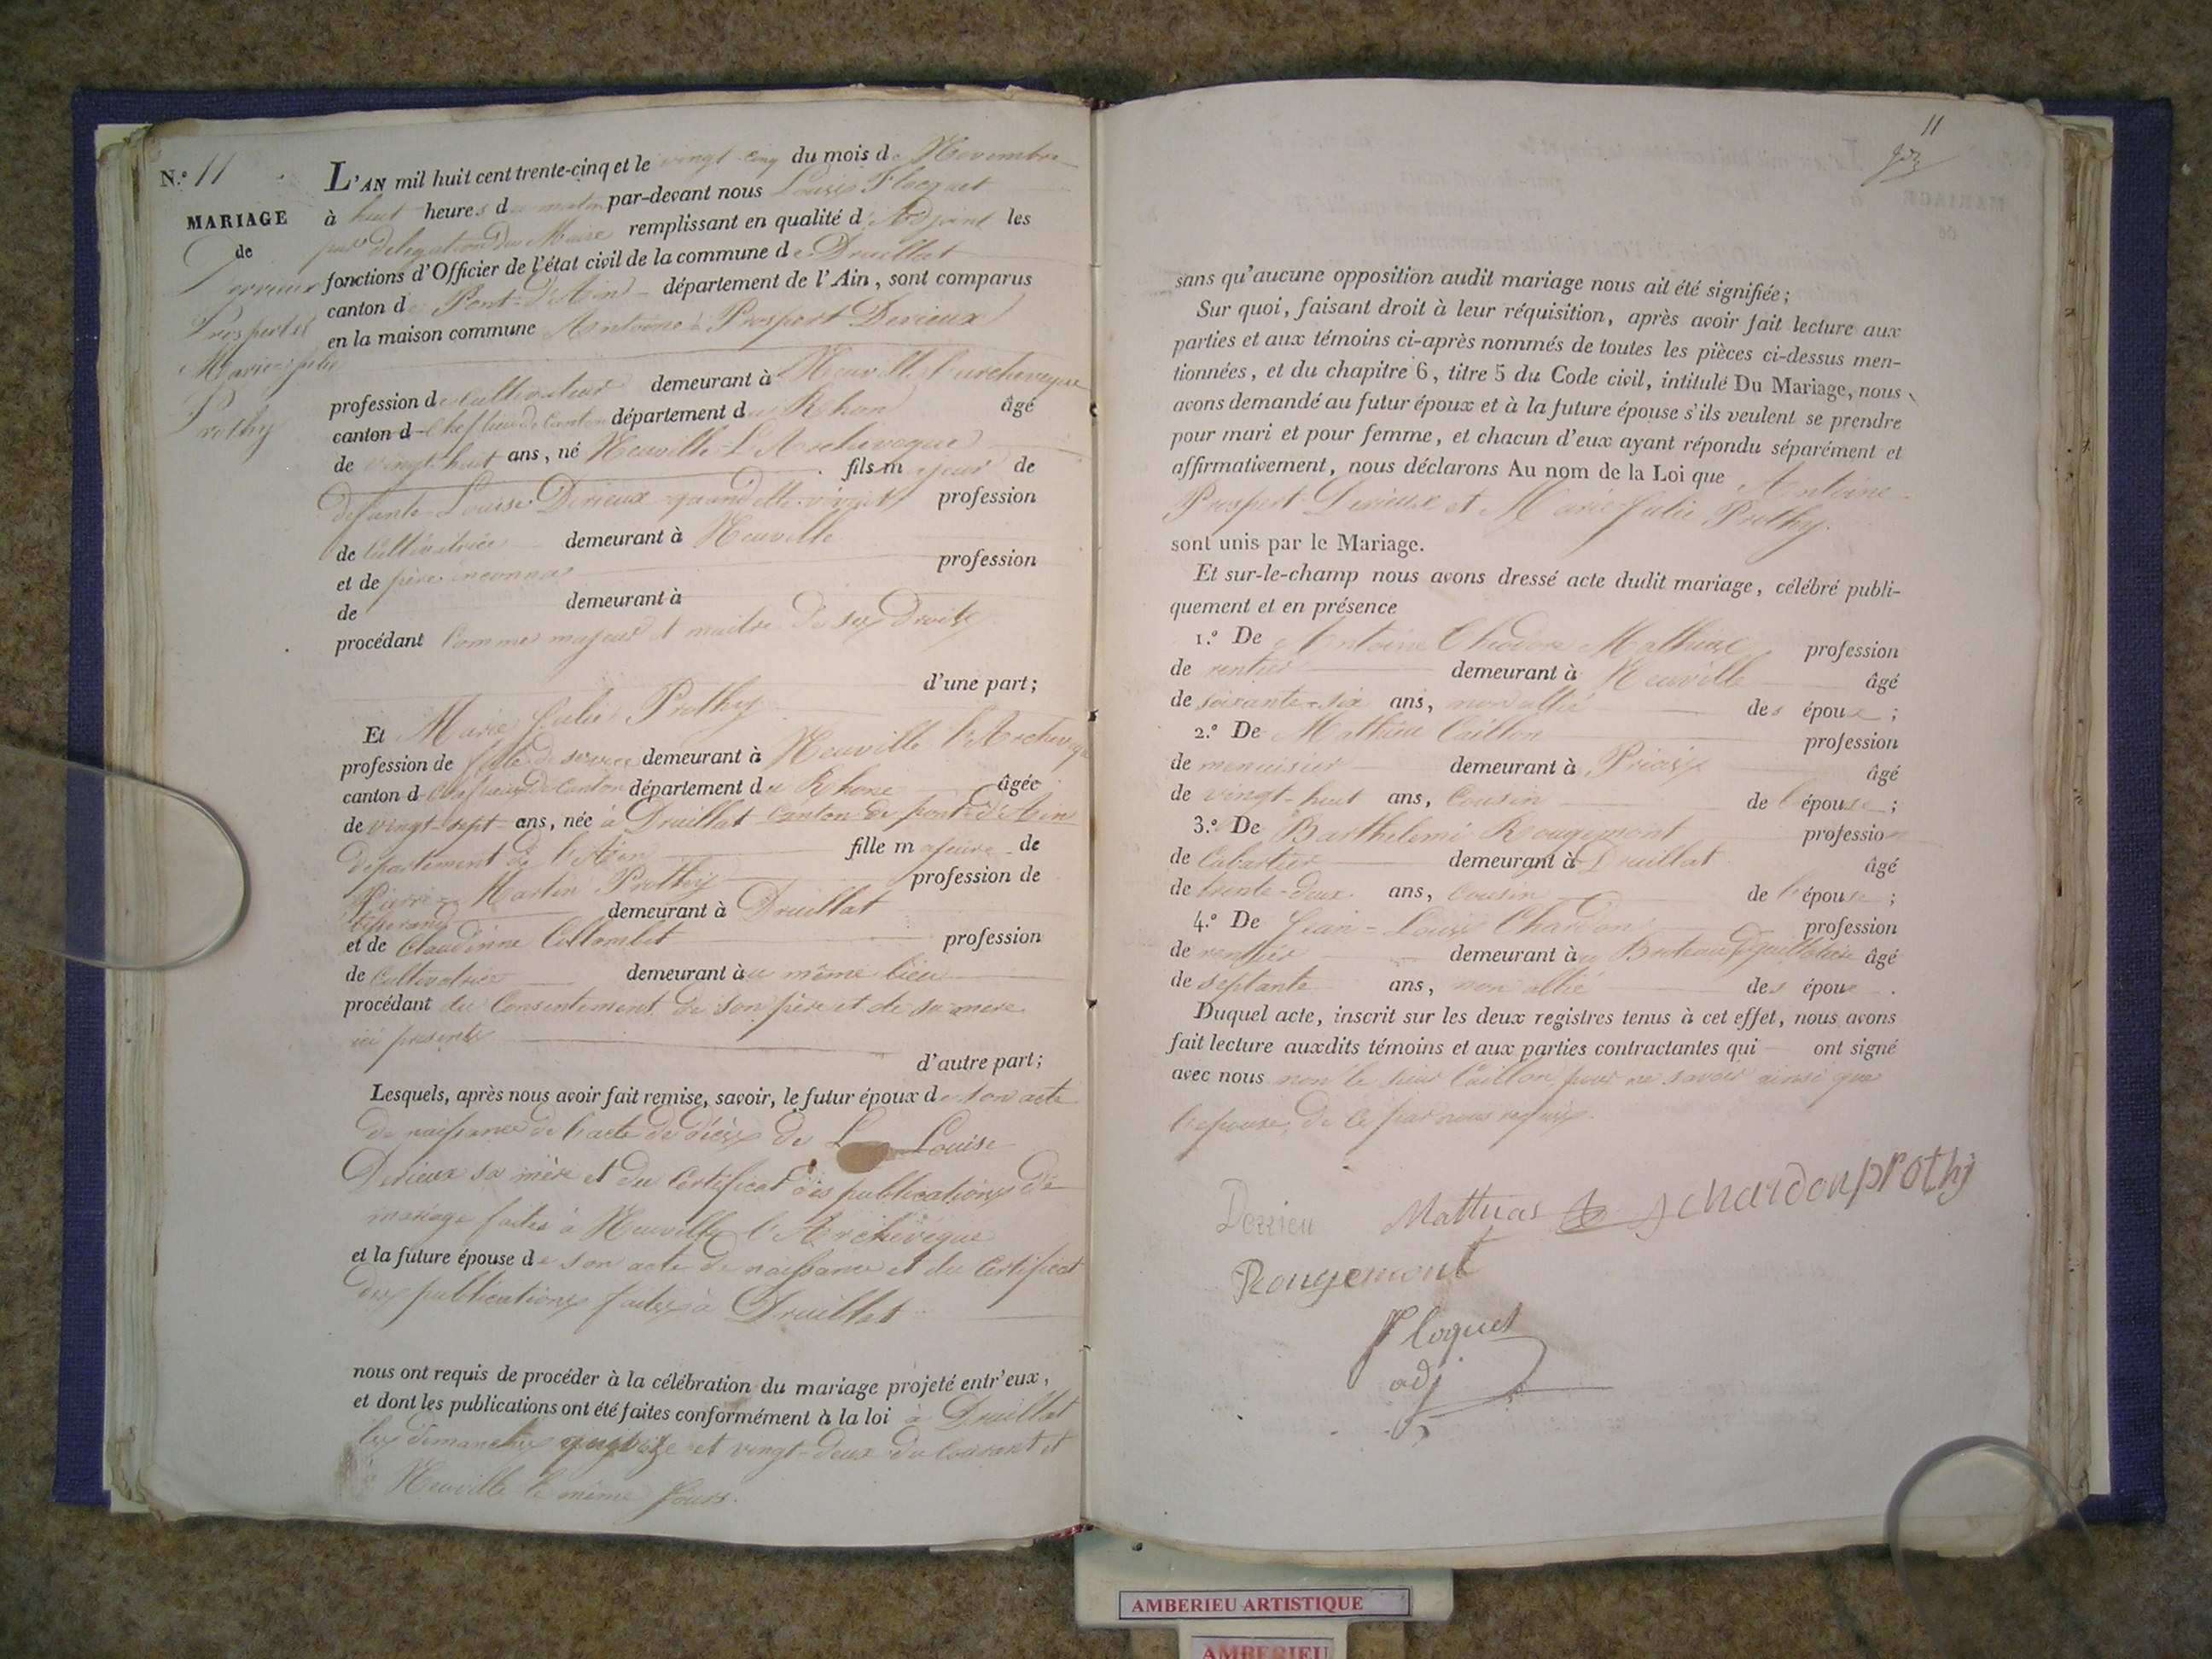 N.º 11
MARIAGE
de
Derrieux
Prospert et
Marie-Julie
Prothy
L'AN mil huit cent trente-cinq et le vingt-cinq du mois de Novembre
à huit heures du matin par-devant nous Louis Flocquet
par délégation du Maire remplissant en qualité d'Adjoint les
fonctions d'Officier de l'état civil de la commune de Druillat
canton de Pont-d'Ain département de l'Ain, sont comparus
en la maison commune Antoine Prospert Derieux
profession de cultivateur demeurant à Neuville l'archeveque
canton d chef lieu de Canton département du Rhone âgé
de vingt-huit ans, né Neuville-L'Archeveque
fils majeur de
défunte Louise Derieux quand elle vivait profession
de Cultivatrice demeurant à Neuville
et de père inconnu profession
de demeurant à
procédant Comme majeur et maître de ses droits
d'une part;
Et Marie Julie Prothy
profession de fille de service demeurant à Neuville l'Archeveque
canton d chef lieu de Canton département du Rhone âgée
de vingt-sept ans, née à Druillat Canton de pont-d'Ain
département de l'Ain fille majeure de
Pierre Martin Prothy profession de
tisserand demeurant à Druillat
et de Claudinne Collombet profession
de Cultivatrice demeurant au même lieu
procédant du Consentement de son père et de sa mère
ici présents
d'autre part;
Lesquels, après nous avoir fait remise, savoir, le futur époux de son acte
de naissance de l'acte de décès de L Louise
Derieux sa mère et du Certificat des publications de
mariage faites à Neuville l'Archevêque
et la future épouse de son acte de naissance et du Certificat
des publications faites à Druillat
nous ont requis de procéder à la célébration du mariage projeté entr'eux,
et dont les publications ont été faites conformément à la loi à Druillat
les dimanches quinze et vingt-deux du Courant et
à Neuville le même jours.
11
sans qu'aucune opposition audit mariage nous ait été signifiée;
Sur quoi, faisant droit à leur réquisition, après avoir fait lecture aux
parties et aux témoins ci-après nommés de toutes les pièces ci-dessus men-
tionnées, et du chapitre 6, titre 5 du Code civil, intitulé Du Mariage, nous
avons demandé au futur époux et à la future épouse s'ils veulent se prendre
pour mari et pour femme, et chacun d'eux ayant répondu séparément et
affirmativement, nous déclarons Au nom de la Loi que Antoine
Prospert Derieux et Marie Julie Prothy.
sont unis par le Mariage.
Et sur-le-champ nous avons dressé acte dudit mariage, célébré publi-
quement et en présence
1.º De Antoine Théodore Mathias profession
de rentier demeurant à Neuville âgé
de soixante-six ans, non allié des époux ;
2.º De Mathieu Caillon profession
de menuisier demeurant à Priay âgé
de vingt-huit ans, Cousin de l'épouse ;
3.º De Barthelemi Rougemont profession
de Cabartier demeurant à Druillat âgé
de trente-deux ans, Cousin de l'épouse ;
4.º De Jean-Louis Chardon profession
de rentier demeurant à âgé
de septante ans, non allié des époux .
Duquel acte, inscrit sur les deux registres tenus à cet effet, nous avons
fait lecture auxdits témoins et aux parties contractantes qui ont signé
avec nous non le sieur Caillon pour ne savoir ainsi que
l'epouse, de ce par nous requis.
Derrieu Mattias chardon prothy
Rougemont
Floquet
adj
AMBERIEU ARTISTIQUE
AMBERIEU